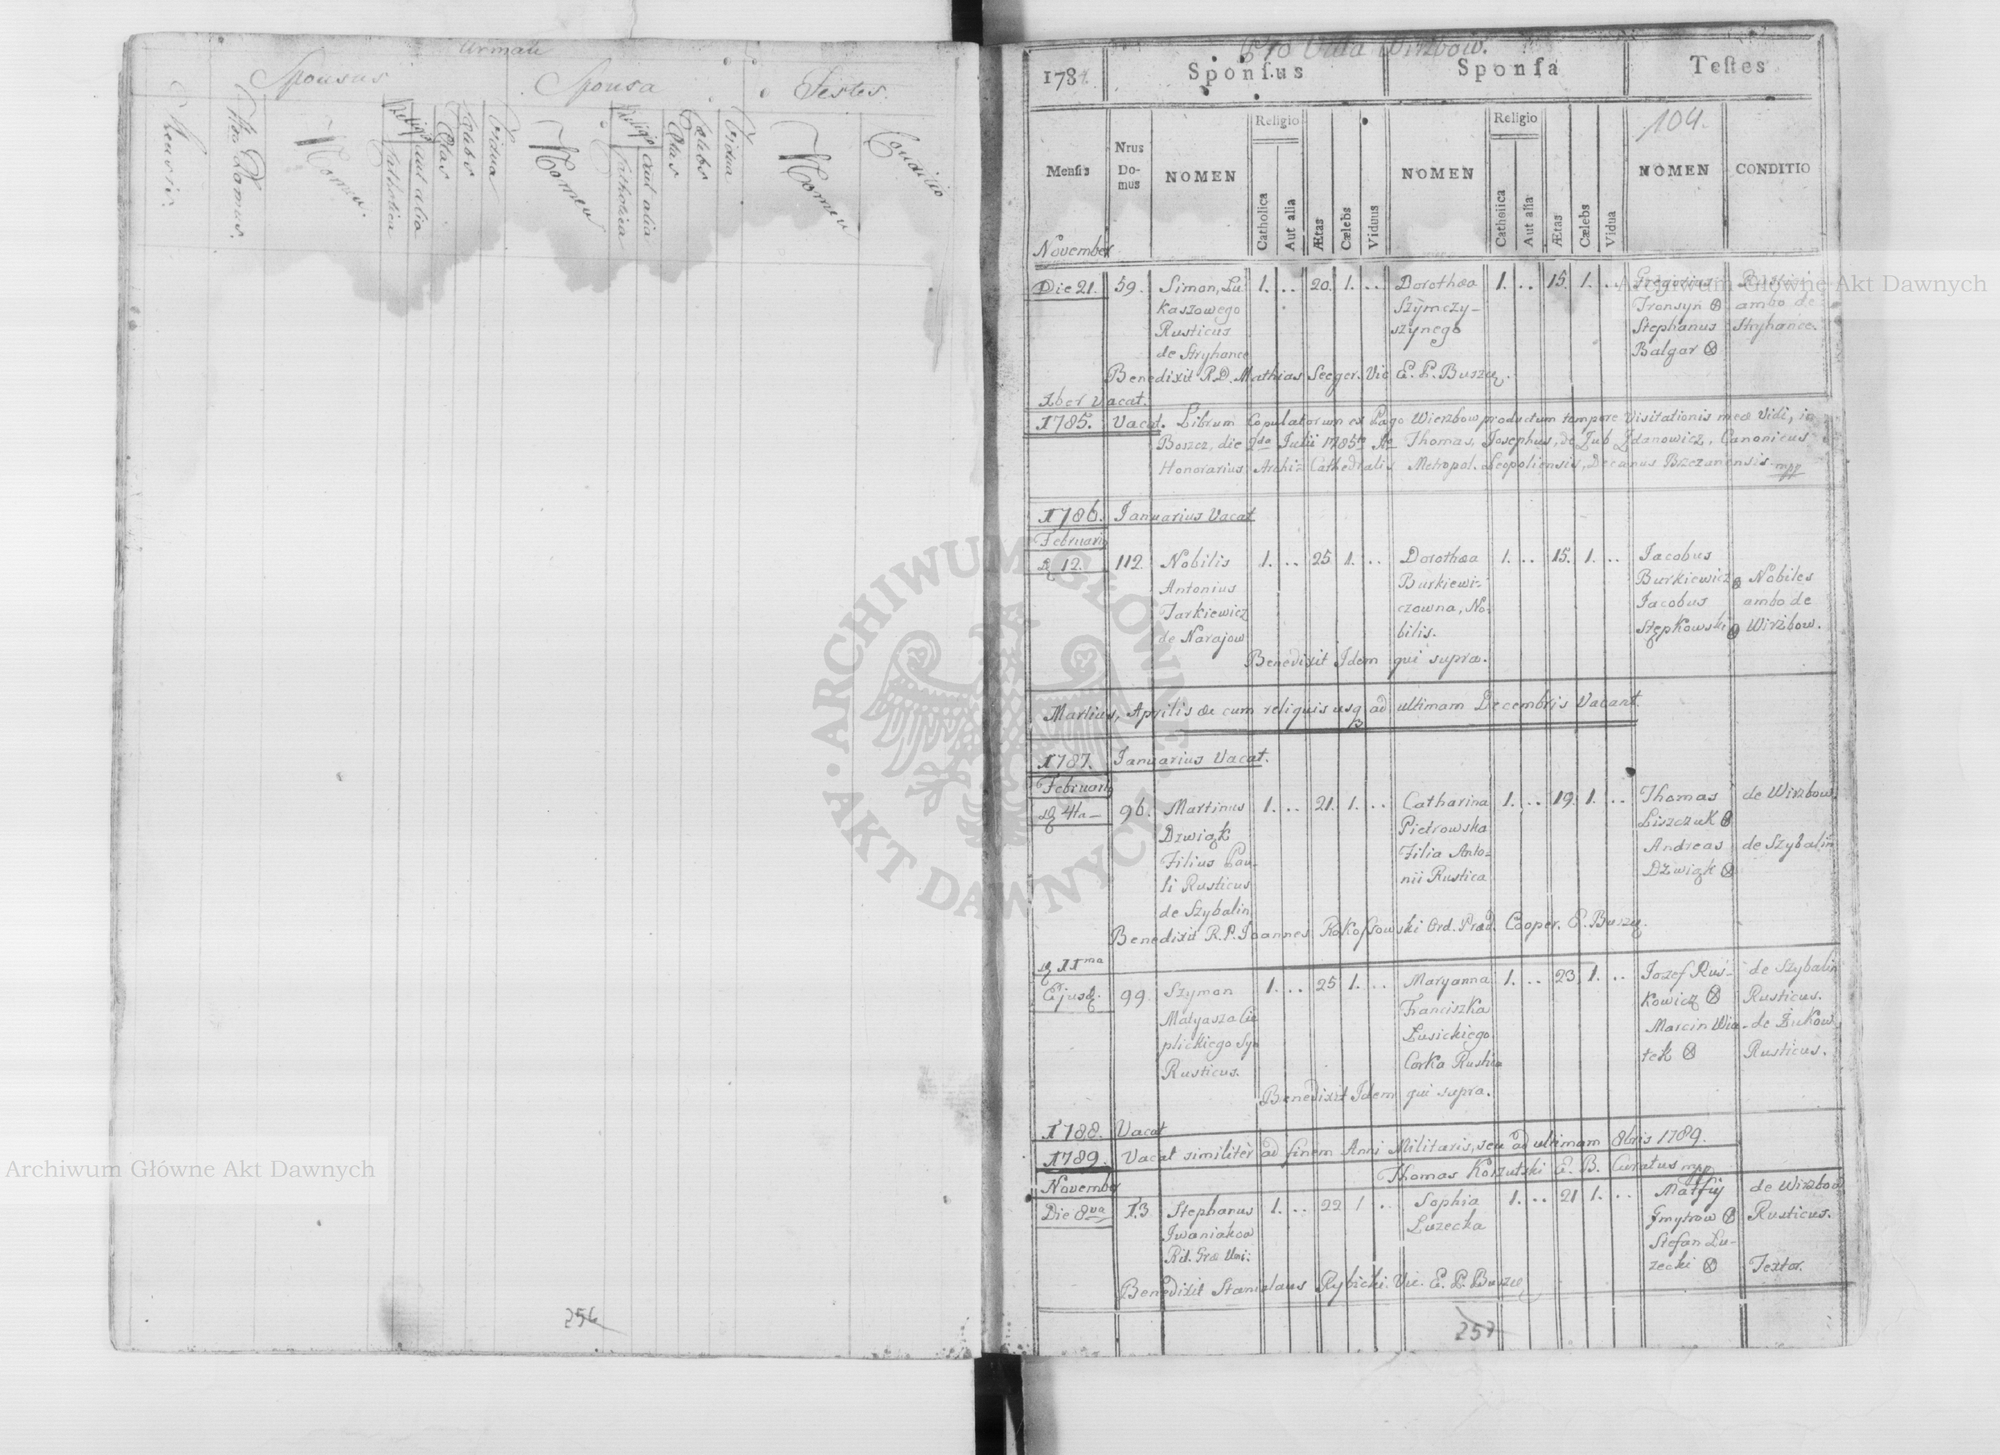 Sponsus
Sponsa
Testes.
Mensis.
Nrus Domus.
Nomen.
Religio
Catholica
aut alia
Ætas
Cælebs
Vidua
Nomen
Religio
Catholica
aut alia
Ætas
Cælebs
Vidua
Nomen
Conditio
256
Pro Villa Wirzbow.
1784.
Sponſus
Sponſa
Teſtes
104.
Menſis
Nrus
Do-
mus
NOMEN
Religio
Catholica
Aut alia
Ætas
Cælebs
Viduus
NOMEN
Religio
Catholica
Aut alia
Ætas
Cælebs
Vidua
NOMEN
CONDITIO
November
Die 21. 59. Simon, Lu- 1. .. 20. 1. .. Dorothea 1. .. 15. 1. .. Gregorius Rustici
kaszowego Szymczy- Fronsyn ⊗ ambo de
Rusticus szynego Stephanus Stryhance.
de Stryhance Balgar ⊗
Benedixit R.D. Mathias Seeger. Vic E. P. Buszcz.
Xber Vacat.
1785. Vacat. Librum Copulatorum ex Pago Wierzbow productum tempore Visitationis meæ Vidi, in
Boszcz, die 9na Julii 1785to Ao Thomas, Josephus, de Jub Zdanowicz, Canonicus
Honorarius Archi-Cathedralis Metropol. Leopoliensis, Decanus Brzezanensis mpp
1786. Januarius Vacat
Februario
d 12. 112. Nobilis 1. .. 25 1. .. Dorothea 1. .. 15. 1. .. Jacobus
Antonius Burkiewi- Burkiewicz ⊗ Nobiles
Tarkiewicz czowna, No- Jacobus ambo de
de Narajow bilis. Stępkowski ⊗ Wirzbow.
Benedixit Idem qui supra.
Martius, Aprilis &c cum reliquis usq ad ultimam Decembris Vacant.
1787. Januarius Vacat.
Februario
d 4ta 96. Martinus 1. .. 21. 1. .. Catharina 1. .. 19. 1. .. Thomas de Wirzbow.
Dzwiązk Pietrowska Liszczuk ⊗
Filius Pau- Filia Anto- Andreas de Szybalin
li Rusticus nii Rustica Dzwiązk ⊗
de Szybalin
Benedixit R. P. Joannes Rokoſsowski Ord. Præd. Cooper. E. Buszcz.
d 11ma
Ejusd. 99. Szymon 1. .. 25 1. .. Maryanna 1. .. 23. 1. .. Jozef Rus- de Szybalin
Matyasza Cie Franciszka kowicz ⊗ Rusticus.
plickiego Syn Lusickiego Marcin Wia- de Żukow
Rusticus. Corka Rustica tek ⊗ Rusticus.
Benedixit Idem qui supra.
1788. Vacat
1789. Vacat similiter ad finem Anni Militaris, seu ad ultimam 8bris 1789.
Thomas Korzutski E. B. Curatus mpp
November
Die 8va 13 Stephanus 1. .. 22 1 .. Sophia 1. .. 21 1. .. Matfiy de Wirzbow
Iwaniakow Luzecka Gmytrow ⊗ Rusticus.
Rit. Græ Uni: Stefan Lu-
zecki ⊗ Textor.
Benedixit Stanislaus Rybicki. Vic. E. P. Buszcz
257
Archiwum Główne Akt Dawnych
ARCHIWUM GŁÓWNE · AKT DAWNYCH ·
Archiwum Główne Akt Dawnych